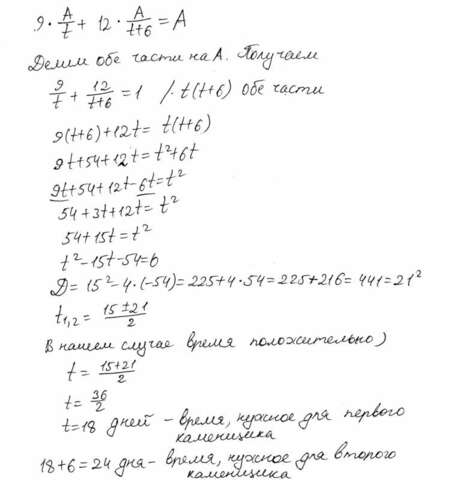 9 · A/t + 12 · A/t+6 = A
Делим обе части на A. Получаем
9/t + 12/t+6 = 1 /· t(t+6) обе части
9(t+6)+12t = t(t+6)
9t+54+12t = t²+6t
9t+54+12t-6t = t²
54+3t+12t = t²
54+15t = t²
t²-15t-54=0
D = 15²-4·(-54)=225+4·54=225+216=441=21²
t₁,₂ = 15±21/2
В нашем случае время положительно)
t = 15+21/2
t = 36/2
t=18 дней - время, нужное для первого
каменщика
18+6=24 дня - время, нужное для второго
каменщика